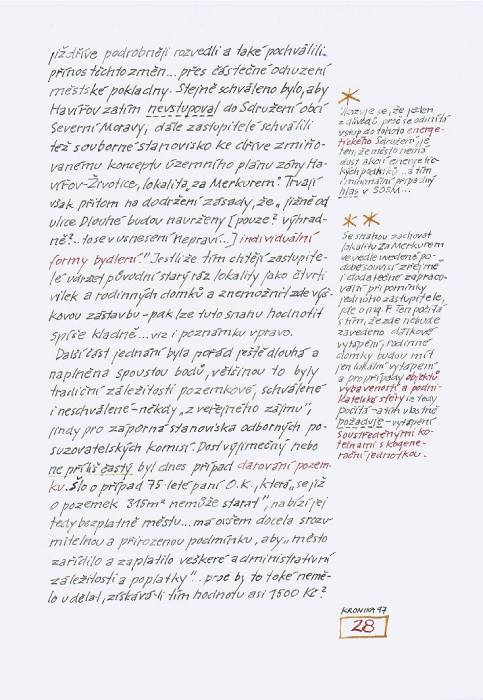 již dříve podrobněji rozvedli a také pochválili
přínos těchto změn... přes částečné ochuzení
městské pokladny. Stejně schváleno bylo, aby
Havířov zatím nevstupoval do Sdružení obcí
Severní Moravy, dále zastupitelé schválili
též souborné stanovisko ke dříve zmiňo-
vanému konceptu územního plánu zóny Ha-
vířov-Životice, lokalita „za Merkurem". Trvají
však přitom na dodržení zásady, že „jižně od
ulice Dlouhé budou navrženy [pouze? výhrad-
ně?..to se v usnesení nepraví...] individuální
formy bydlení." Jestliže tím chtějí zastupite-
lé udržet původní starý ráz lokality jako čtvrti
vilek a rodinných domků a znemožnit zde výš-
kovou zástavbu - pak lze tuto snahu hodnotit
spíše kladně...viz i poznámku vpravo.
Další část jednání byla pořád ještě dlouhá a
naplněna spoustou bodů, většinou to byly
tradiční záležitosti pozemkové, schválené
i neschválené - někdy „z veřejného zájmu",
jindy pro záporná stanoviska odborných po-
suzovatelských komisí. Dost výjimečný nebo
ne příliš častý byl dnes případ darování pozem-
ku. Šlo o případ 75-leté paní O.K., která „se již
o pozemek 315m² nemůže starat", nabízí jej
tedy bezplatně městu...má ovšem docela srozu-
mitelnou a přirozenou podmínku, aby „město
zařídilo a zaplatilo veškeré administrativní
záležitosti a poplatky"...proč by to také nemě-
lo udělat, získává-li tím hodnotu asi 1500 Kč?
*
Ukazuje se, že jeden
z důvodů, proč se odmítá
vstup do tohoto energe-
tického Sdružení, je
ten, že město nemá
dost akcií energetic-
kých podniků...a tím
i minimální případný
hlas v SOSM...
* *
Se snahou zachovat
lokalitu Za Merkurem
ve vedle uvedené po-
době souvisí zřejmě
i dodatečné zapraco-
vání připomínky
jednoho zastupitele,
jde o ing. F. Ten počítá
s tím, že zde nebude
zavedeno dálkové
vytápění, rodinné
domky budou mít
jen lokální vytápění
a pro případy objektů
vybavenosti a podni-
katelské sféry se tedy
počítá - a tím vlastně
požaduje - vytápění
soustředěnými ko-
telnami s kogene-
rační jednotkou.
KRONIKA 97
28